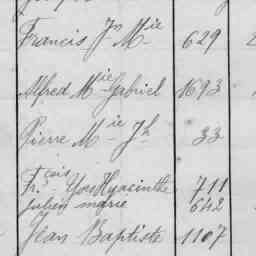 Francis Jn Mie 629
Alfred Mie Gabriel 1693
Pierre Mie Jh 33
Frcois Yves Hyacinthe 711
Julien marie 642
Jean Baptiste 1107